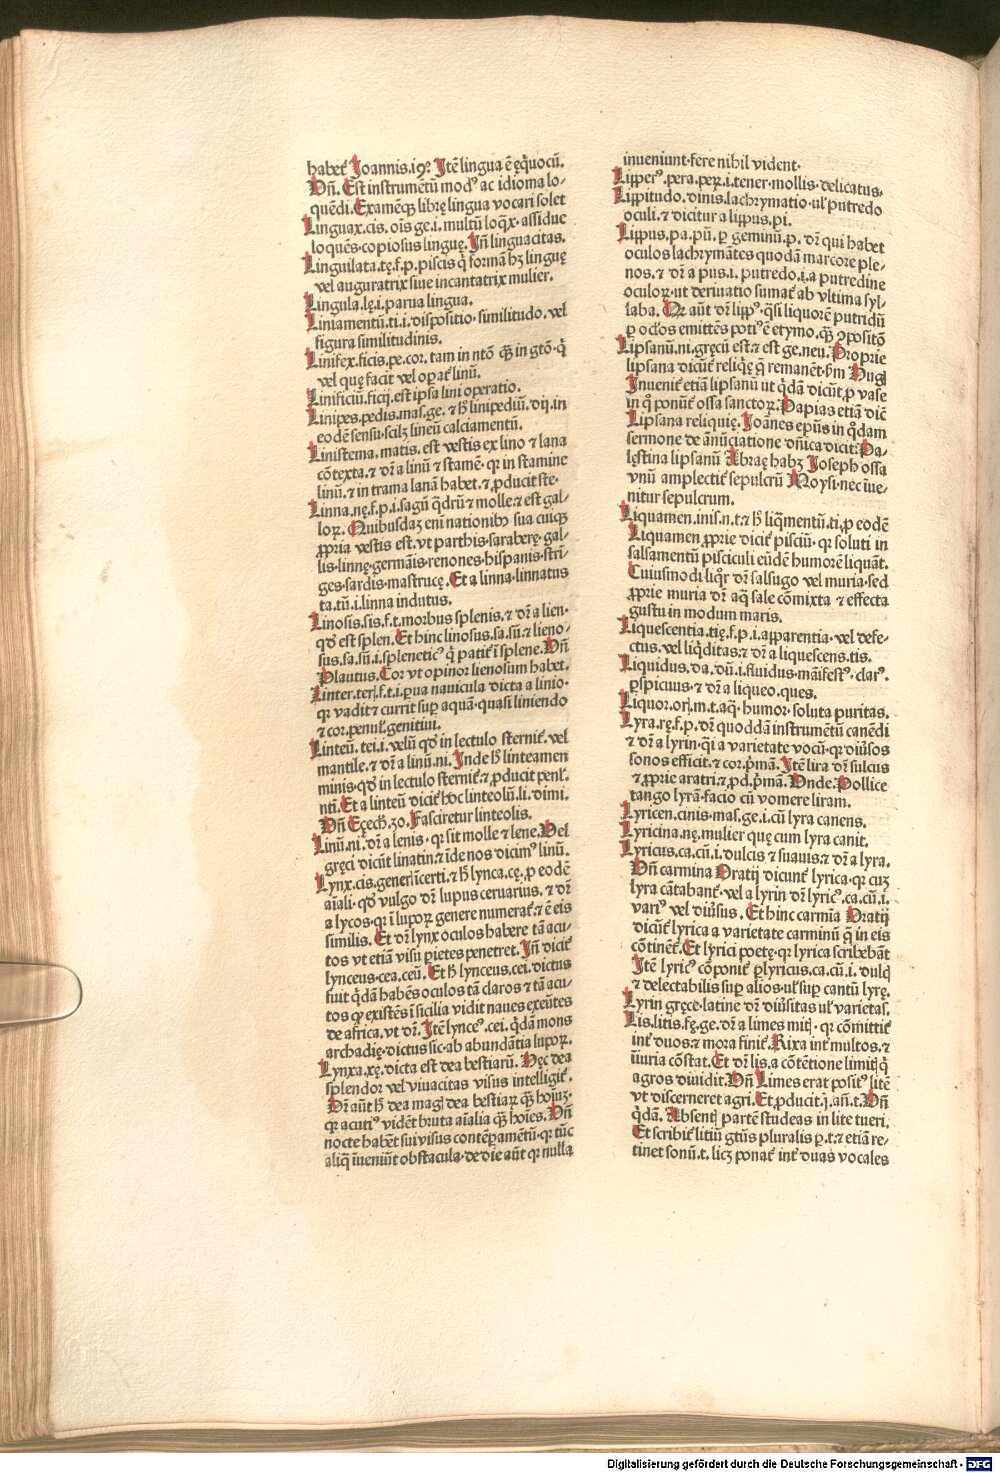 habet᷑ Joannis.i9? Jtē lingua ē ęq̄uocū.
Vn̄. Est instrumētū modꝰ ac idioma lo-
quēdi. Examēqꝫ librę lingua vocari solet
Linguax.cis.oīs ge.i.multū loq̄x.assidue
loquēs.copiosus linguę. Jn̄ linguacitas.
Lingulata.tę.f.p.piscis q̄ formā hꝫ linguę
vel auguratrix siue incantatrix mulier.
Lingula.lę.i.parua lingua.
Liniamentū.ti.i.dispositio.similitudo.vel
figura similitudinis.
Linifex.ficis.pe.cor.tam in nt̄o qꝫ̄ in gt̄o.q̄
vel quę facit vel oꝑat᷑ linū.
Linificiū.ficij.est ipsa lini operatio.
Linipes.pedis.mas.ge.⁊ h̄ linipediū.dij.in
eodē sensu.scilꝫ lineū calciamentū.
Linistema.matis.est vestis ex lino ⁊ lana
cōtexta.⁊ dr̄ a linū ⁊ stamē.qꝛ in stamine
linū.⁊ in trama lanā habet.⁊ ꝓducit ste-
Linna.nę.f.p.i.sagū q̄drū ⁊ molle.⁊ est gal-
loꝝ. Quibusdaꝫ eni nationibꝰ sua cuiqꝫ
ꝓpria vestis est.vt parthis.saraberę.gal-
lis.linnę.germāis.renones.hispanis.stri-
ges.sardis.mastrucę. Et a linna.linnatus
ta.tū.i.linna indutus.
Linosis.sis.f.t.morbus splenis.⁊ dr̄ a lien.
qd̄ est splen. Et hinc linosus.sa.sū.⁊ lieno-
sus.sa.sū.i.spleneticꝰ q̄ patit᷑ ī splene. Vn̄
Plautus. Cor vt opinor lienosum habet.
Linter.terꝭ.f.t.i.ꝑua nauicula dicta a linio.
qꝛ vadit ⁊ currit suꝑ aquā.quasi liniendo
⁊ cor.penul᷑.genitiui.
Linteū.tei.i.velū qd̄ in lectulo sternit᷑.vel
mantile.⁊ dr̄ a linū.ni. Jnde h̄ linteamen
minis.qd̄ in lectulo sternit᷑.⁊ ꝓducit penł.
nt̄i. Et a linteū dicit᷑ hoc linteolū.li.dimi.
Vn̄ Eęech.30. Fasciretur linteolis.
Linū.ni.dr̄ a lenis.qꝛ sit molle ⁊ lene. Vel
gręci dicūt linatin.⁊ īde nos dicimꝰ linū.
Lynx.cis.generꝭ īcerti.⁊ h̄ lynca.cę.ꝓ eodē
aīali.qd̄ vulgo dr̄ lupus ceruarius.⁊ dr̄
a lycos.qꝛ ī lupoꝝ genere numerat᷑.⁊ ē eis
similis. Et dr̄ lynx oculos habere tā acu-
tos vt etiā visu ꝑietes penetret. Jn̄ dicit᷑
lynceus.cea.ceū. Et h̄ lynceus.cei.dictus
fuit q̄dā habēs oculos tā claros ⁊ tā acu-
tos ꝙ existēs ī sicilia vidit naues exeūtes
de africa.vt dr̄. Jtē lynceꝰ.cei.q̄dā mons
archadię.dictus sic.ab abundātia lupoꝝ.
Lynxa.xę.dicta est dea bestiarū. Hęc dea
splendor vel viuacitas visus intelligit᷑.
Dr̄ aūt h̄ dea magꝭ dea bestiaꝝ qꝫ̄ hoīuꝫ.
qꝛ acutiꝰ vidēt bruta aīalia qꝫ̄ hoīes. Vn̄
nocte habēt sui visus contēꝑamētū.qꝛ tūc
aliq̄ īueniūt obstacula.de die aūt qꝛ nulla
inueniunt.fere nihil vident.
Lipperꝰ.pera.peꝝ.i.tener.mollis.delicatus.
Lippitudo.dinis.lachrymatio.ul᷑ putredo
oculi.⁊ dicitur a lippus.pi.
Lippus.pa.pū.ꝑ geminū.p.dr̄ qui habet
oculos lachrymātes quodā marcore ple-
nos.⁊ dr̄ a pus.i.putredo.i.a putredine
oculoꝝ.ut deriuatio sumat᷑ ab vltima syl-
laba. Qꝛ aūt dr̄ lippꝰ.q̄si liquorē putridū
ꝑ ocl̄os emittēs potiꝰ ē etymo.qꝫ̄ ꝯpositō
Lipsanū.ni.gręcū est.⁊ est ge.neu. Proprie
lipsana dicūt᷑ reliq̄ę q̄ remanēt.fm̄ Hugꝭ
Jnuenit᷑ etiā lipsanū ut q̄dā dicūt.ꝓ vase
in q̄ ponūt᷑ ossa sanctoꝝ. Papias etiā dic̄
Lipsana reliquię. Joānes ep̄us in q̄dam
sermone de ānūciatione dn̄ica dicit. Pa-
lęstina lipsanū Abraę habꝫ Joseph ossa
vnū amplectit᷑ sepulcrū Moysi.nec īue-
nitur sepulcrum.
Liquamen.inis.n.t.⁊ h̄ liq̄mentū.ti.ꝓ eodē
Liquamen ꝓprie dicit᷑ pisciū.qꝛ soluti in
salsamentū pisciculi eūdē humorē liquāt.
Cuiusmodi liq̄r dr̄ salsugo vel muria.sed
ꝓprie muria dr̄ aq̄ sale cōmixta ⁊ effecta
gustu in modum maris.
Liquescentia.tię.f.p.i.apparentia.vel defe-
ctus.vel liq̄ditas.⁊ dr̄ a liquescens.tis.
Liquidus.da.dū.i.fluidus.māifestꝰ.clarꝰ.
ꝑspicuus.⁊ dr̄ a liqueo.ques.
Liquor.orꝭ.m.t.aq̄.humor.soluta puritas.
Lyra.rę.f.p.dr̄ quoddā instrumētū canēdi
⁊ dr̄ a lyrin.q̄i a varietate vocū.qꝛ diūsos
sonos efficit.⁊ cor.p̄mā. Jtē lira dr̄ sulcus
⁊ ꝓprie aratri.⁊ ꝓd.p̄mā. Vnde. Pollice
tango lyrā.facio cū vomere liram.
Lyricen.cinis.mas.ge.i.cū lyra canens.
Lyricina.nę.mulier quę cum lyra canit.
Lyricus.ca.cū.i.dulcis ⁊ suauis.⁊ dr̄ a lyra.
Vn̄ carmina Oratij dicunt᷑ lyrica.qꝛ cuꝫ
lyra cātabant᷑.vel a lyrin dr̄ lyricꝰ.ca.cū.i.
variꝰ vel diūsus. Et hinc carmīa Oratij
dicūt᷑ lyrica a varietate carminū q̄ in eis
cōtinēt᷑. Et lyrici poetę.qꝛ lyrica scribebāt
Jtē lyricꝰ cōponit᷑ ꝑlyricus.ca.cū.i.dulcꝭ
⁊ delectabilis suꝑ alios.ul᷑ suꝑ cantū lyrę.
Lyrin gręce.latine dr̄ diūsitas ul᷑ varietas.
Lis.litis.fę.ge.dr̄ a limes mitꝭ.qꝛ cōmittit᷑
int᷑ duos.⁊ mora finit᷑. Rixa int᷑ multos.⁊
īiuria cōstat. Et dr̄ lis.a cōtētione limitꝭ q̄
agros diuidit. Vn̄ Limes erat positꝰ litē
vt discerneret agri. Et ꝓducit.i.an̄.t. Vn̄
q̄dā. Absentꝭ partē studeas in lite tueri.
Et scribit᷑ litiū gt̄us pluralis ꝑ.t.⁊ etiā re-
tinet sonū.t.licꝫ ponat᷑ int᷑ duas vocales
Digitalisierung gefördert durch die Deutsche Forschungsgemeinschaft - DFG